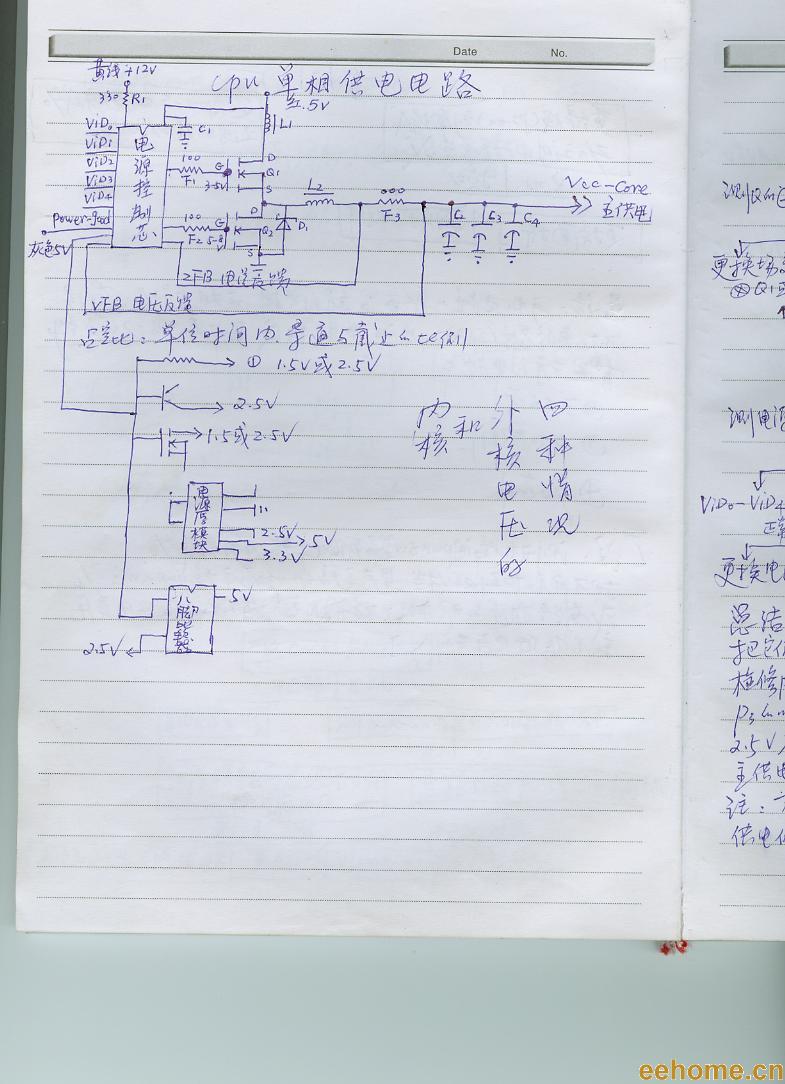 Date No.
黄线+12V
cpu 单相供电电路
330 R1
红.5V
L1
C1
ViD0
ViD1
ViD2
ViD3
ViD4
电源控制芯
100
F1
G
3-5V
D
Q1
S
L2
000
F3
Vcc-Core
主供电
Power-good
灰色5V
100
F2 5-8V
G
D
Q2
S
D1
C2
C3
C4
2FB 电流反馈
VFB 电压反馈
占空比:单位时间内.导通与截止的比例
① 1.5V或2.5V
2.5V
1.5或2.5V
内核和外核电压的四种情况
电源厚模块
2.5V
5V
3.3V
八脚
5V
2.5V
测Q的
更换场
ⓧQ1或
测电源
ViD0-ViD4
正常
更换电
总结
把它
检修
2.5V
主供电
注:
供电
eehome.cn